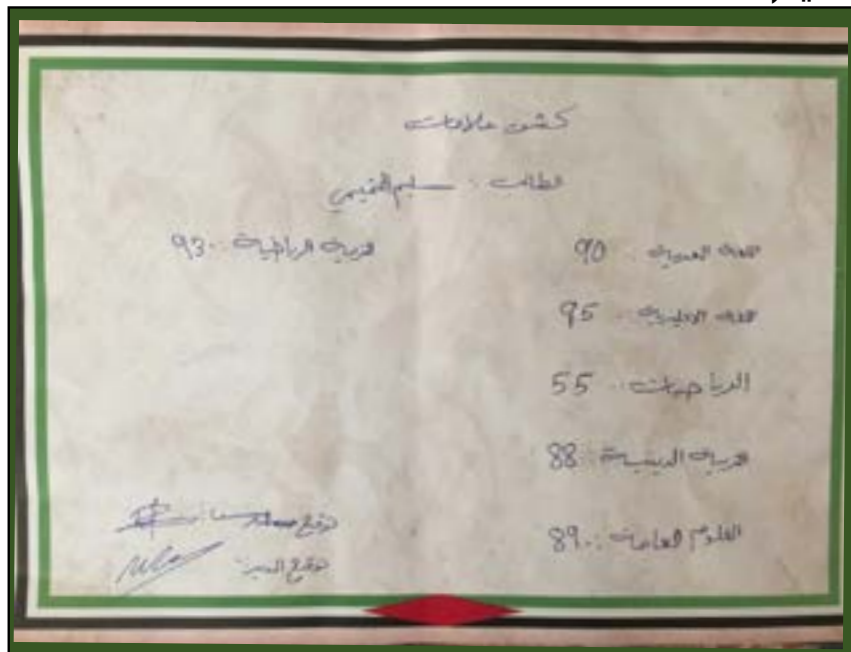 كشف علامات
الطالب : سليم التميمي
اللغة العربية : 90
التربية الرياضية : 93
اللغة الانجليزية : 95
الرياضيات : 55
التربية الدينية : 88
العلوم العامة : 89
توقيع
توقيع المدير